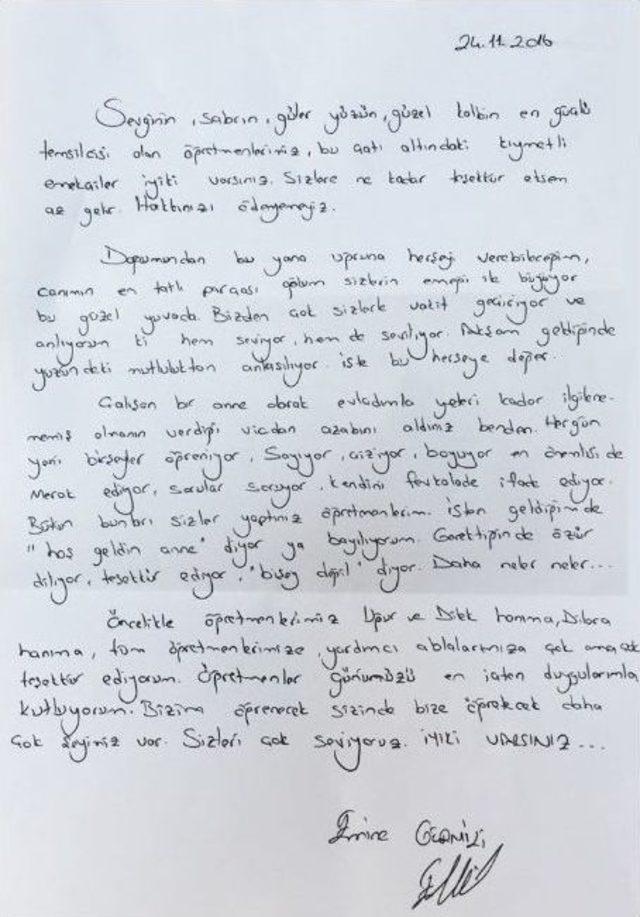 24.11.2016
Sevginin, sabrın, güler yüzün, güzel kalbin en güçlü
temsilcisi olan öğretmenlerimiz, bu çatı altındaki kıymetli
emekçiler iyiki varsınız. Sizlere ne kadar teşekkür etsem
az gelir. Hakkınızı ödeyemeyiz.
Doğumundan bu yana uğruna herşeyi verebileceğim,
canımın en tatlı parçası oğlum sizlerin emeği ile büyüyor
bu güzel yuvada. Bizden çok sizlerle vakit geçiriyor ve
anlıyorum ki hem seviyor, hem de seviliyor. Akşam geldiğinde
yüzündeki mutluluktan anlaşılıyor. işte bu herşeye değer.
Çalışan bir anne olarak evladımla yeteri kadar ilgilene-
memiş olmanın verdiği vicdan azabını aldınız benden. Hergün
yeni birşeyler öğreniyor, Sayıyor, çiziyor, boyuyor en önemlisi de
merak ediyor, sorular soruyor, kendini fevkalade ifade ediyor.
Bütün bunları sizler yaptınız öğretmenlerim. İşten geldiğimde
"hoş geldin anne" diyor ya bayılıyorum. Gerektiğinde özür
diliyor, teşekkür ediyor, "bişey değil" diyor. Daha neler neler...
Öncelikle öğretmenlerimiz Uğur ve Dilek hanıma, Dilara
hanıma, tüm öğretmenlerimize, yardımcı ablalarımıza çok ama çok
teşekkür ediyorum. Öğretmenler gününüzü en içten duygularımla
kutluyorum. Bizim öğrenecek sizinde bize öğretecek daha
çok şeyiniz var. Sizleri çok seviyoruz. iyiki VARSINIZ...
Emine